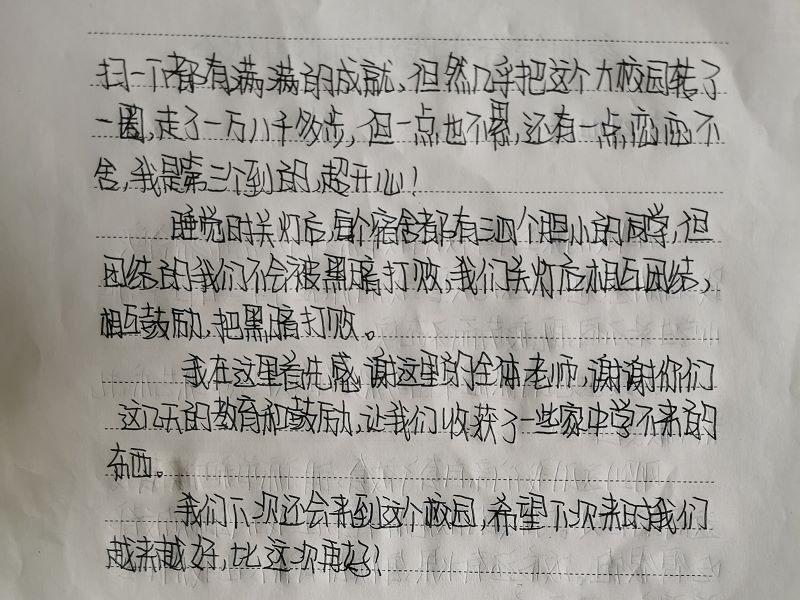 扫一下都有满满的成就,但然几乎把这个大校园转了
一圈,走了一万八千多步,但一点也不累,还有一点恋恋不
舍,我是第三个到的,超开心!
睡觉时关灯后,每个宿舍都有三四个胆小的同学,但
团结的我们不会被黑暗打败,我们关灯后相互团结、
相互鼓励,把黑暗打败。
我在这里首先感谢这里的全体老师,谢谢你们
这几天的教育和鼓励,让我们收获了一些家中学不来的
东西。
我们下次还会来到这个校园,希望下次来时我们
越来越好,比这次再好!